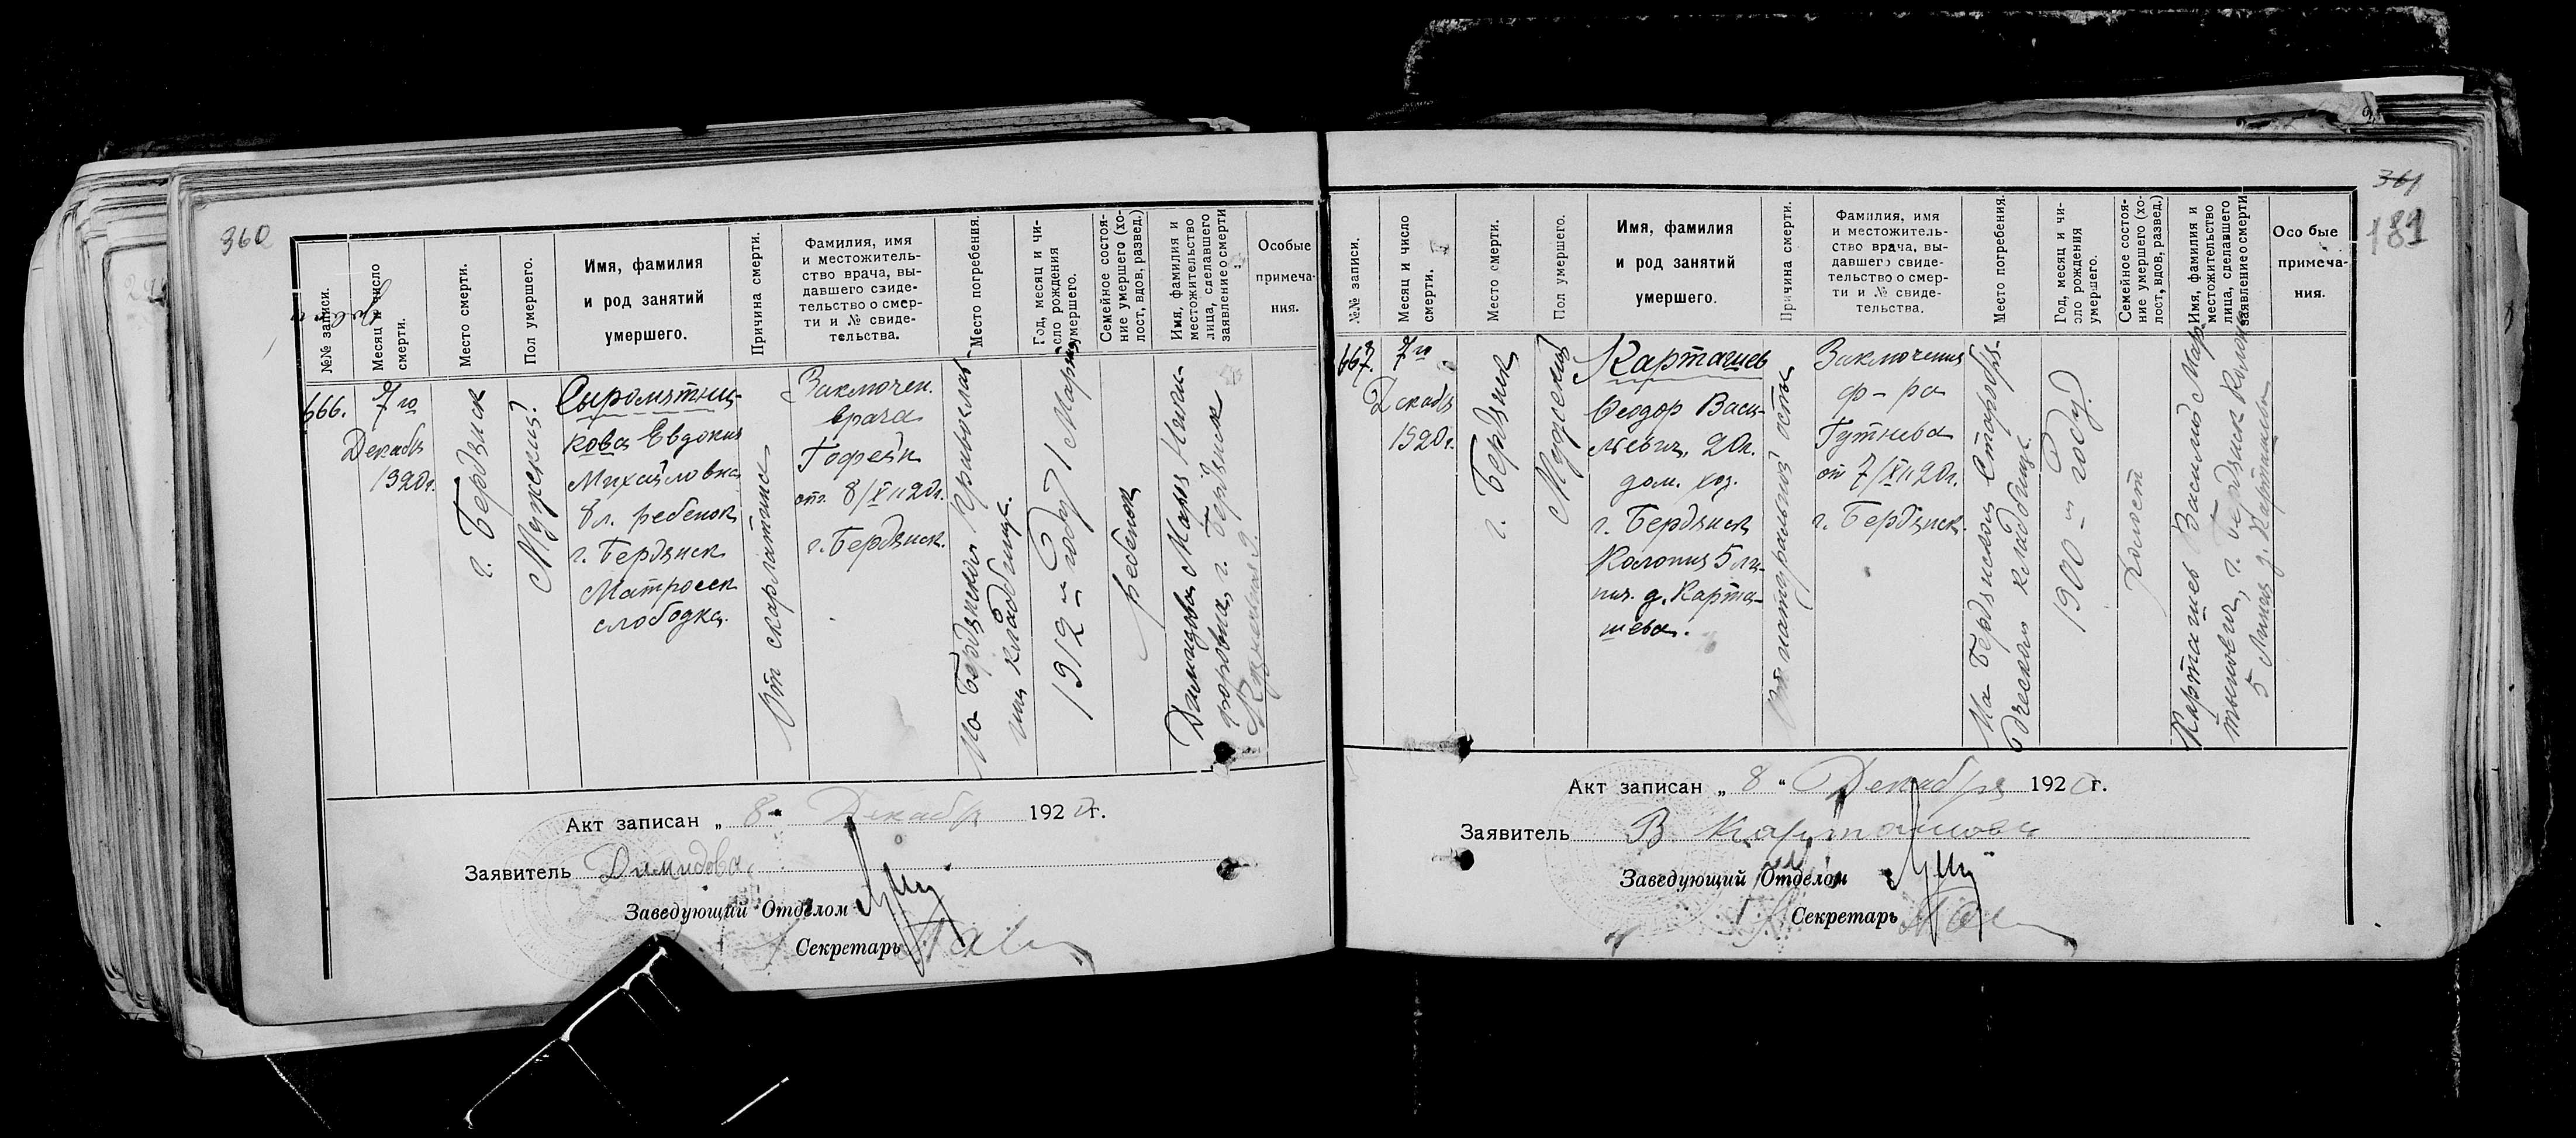 360
№№ записи.
Месяц и число
смерти.
Место смерти.
Пол умершего.
Имя, фамилия
и род занятий
умершего.
Причина смерти.
Фамилия, имя
и местожитель-
ство врача, вы-
давшего свиде-
тельство о смер-
ти и № свиде-
тельства.
Место погребения.
Год, месяц и чи-
сло рождения
умершего.
Семейное состоя-
ние умершего (хо-
лост, вдов, развед.)
Имя, фамилия и
местожительство
лица, сделавшего
заявление о смерти
Особые
примеча-
ния.
666.
7го
Декабр
1920г.
г. Бердянск
Мужский
Сыромятни-
кова Евдокия
Михайловна
8 л. ребенок
г. Бердянск
Матросск
слободка.
От скарлатины
Заключен.
врача
Гофрейн
от 8/XII 20г.
г. Бердянск.
На Бердянском Православ-
ном кладбище.
1912 – году Март
ребенок
Димидова Мария
г. Бердянск
Акт записан „ 8 “ Декабр 1920г.
Заявитель Димидова
Заведующий Отделом
Секретарь
361
181
№№ записи.
Месяц и число
смерти.
Место смерти.
Пол умершего.
Имя, фамилия
и род занятий
умершего.
Причина смерти.
Фамилия, имя
и местожитель-
ство врача, вы-
давшего свиде-
тельство о смер-
ти и № свиде-
тельства.
Место погребения.
Год, месяц и чи-
сло рождения
умершего.
Семейное состоя-
ние умершего (хо-
лост, вдов, развед.)
Имя, фамилия и
местожительство
лица, сделавшего
заявление о смерти
Особые
примеча-
ния.
667.
7го
Декабр
1920г.
г. Бердянск
Мужский
Карташев
Феодор Васи-
льевич, 20л.
дом. хоз.
г. Бердянск
Колония 5 ли-
ния. д. Карта-
шева.
От натуральной оспы
Заключения
ф-ра
Гутнева
от 7/XII 20г.
г. Бердянск.
На Бердянском Старообря-
дческом кладбище
1900 – году
холост
Карташев Василий Мар-
тынович, г. Бердянск Колония
5 Линия д. Карташева
Акт записан „ 8 “ Декабря 1920г.
Заявитель В Карташова
Заведующий Отделом
Секретарь